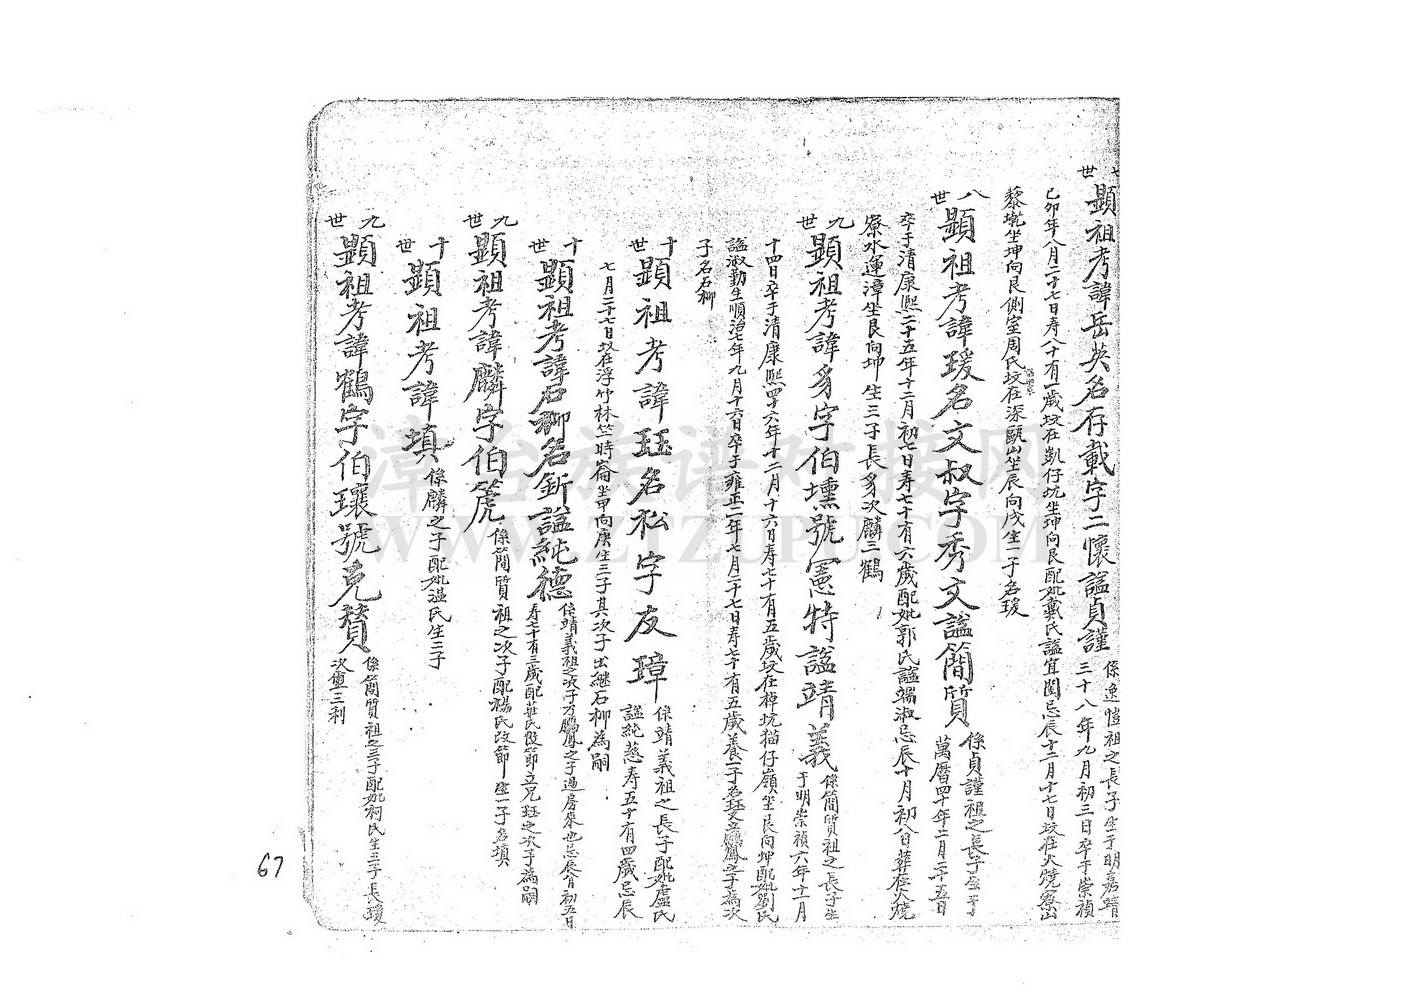 七世
顯祖考諱岳英名存載字二懷謚貞謹
係逸愷祖之長子生于明嘉靖
三十八年九月初三日卒于崇禎
己卯年八月二十七日寿八十有一歲坟在凱仔坑坐坤向艮配妣戴氏謚宜閨忌辰十二月十七日坟在火燒寮山
藜坑坐坤向艮側室周氏坟在深甌山坐辰向戌生一子名瑗
八世
顯祖考諱瑗名文叔字秀文謚簡質
係貞謹祖之長子生于
萬曆四十年二月二十五日
卒于清康熙二十五年十二月初七日寿七十有六歲配妣郭氏謚端淑忌辰十月初八日葬在火燒
寮水運漳坐艮向坤生三子長豸次麟三鶴
九世
顯祖考諱豸字伯壎號憲特謚靖義
係簡質祖之長子生
于明崇禎六年十一月
十四日卒于清康熙四十六年十二月十六日寿七十有五歲坟在樟坑猫仔嶺坐艮向坤配妣劉氏
謚淑勤生順治七年九月十六日卒于雍正二年七月二十七日寿七十有五歲養一子名珏又立鵬鳳之子為次
子名石柳
十世
顯祖考諱珏名松字友璋
係靖義祖之長子配妣盧氏
謚純慈寿五十有四歲忌辰
七月二十七日坟在浮竹林竺時崙坐甲向庚生三子其次子出継石柳為嗣
十世
顯祖考諱石柳名新謚純德
係靖義祖之次子乃鵬鳳之子過房來也忌辰八月初五日
寿七十有三歲配莊氏改節立兄珏之次子為嗣
九世
顯祖考諱麟字伯篪
係簡質祖之次子配楊氏改節生一子名填
十世
顯祖考諱填
係麟之子配妣温氏生三子
九世
顯祖考諱鶴字伯瓖號克贊
係簡質祖之三子配妣柯氏生三子長瓊
次寶三利
67
漳台族谱对接网
WWW.ZTZUPU.COM